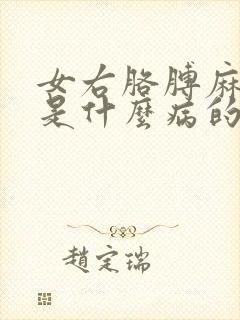 女右胳膊麻
是什麼病的
趙定瑞